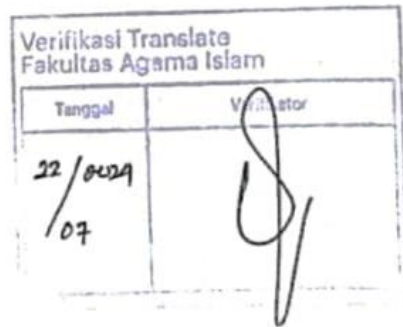 Verifikasi Translate
Fakultas Agama Islam
Tanggal Verifikator
22/2024
/07